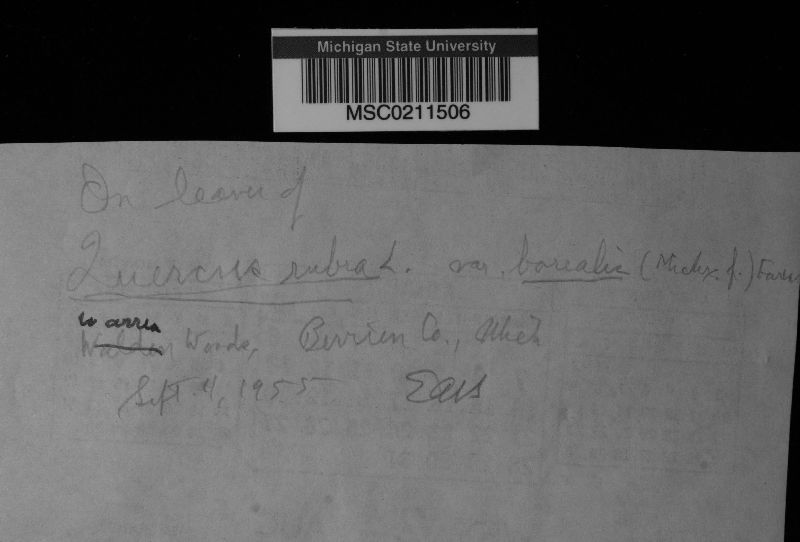 Michigan State University
MSC0211506
On leaves of
Quercus rubra L. var. borealis (Michx. f.) Farw
Warren
Walden Woods, Berrien Co., Mich
Sept 4, 1955